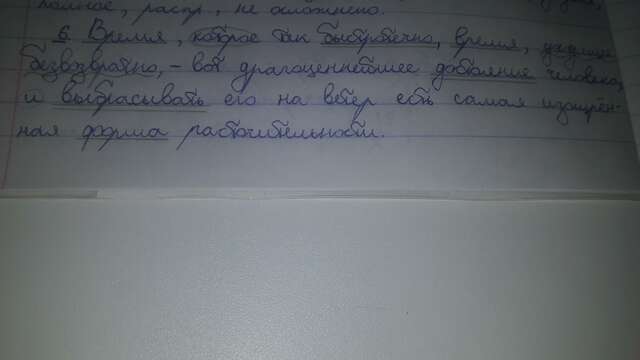 полное, распр., не осложнено.
6. Время, которое так быстротечно, время, уходящее
безвозвратно, – вот драгоценнейшее достояние человека,
и выбрасывать его на ветер есть самая изощрён-
ная форма расточительности.